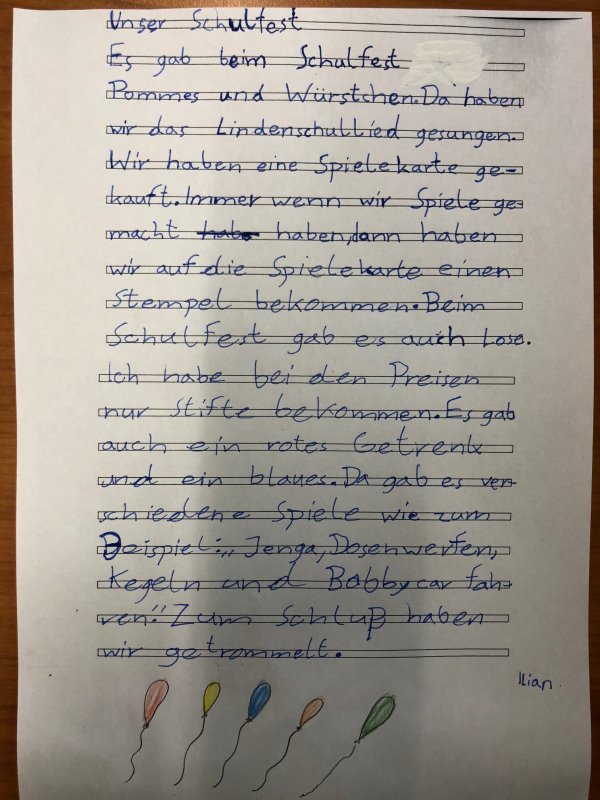 Unser Schulfest
Es gab beim Schulfest
Pommes und Würstchen. Da haben
wir das Lindenschullied gesungen.
Wir haben eine Spielekarte ge-
kauft. Immer wenn wir Spiele ge-
macht haben, dann haben
wir auf die Spielekarte einen
Stempel bekommen. Beim
Schulfest gab es auch Lose.
Ich habe bei den Preisen
nur Stifte bekommen. Es gab
auch ein rotes Getrenk
und ein blaues. Da gab es ver-
schiedene Spiele wie zum
Beispiel: „Jenga, Dosenwerfen,
Kegeln und Bobbycar fah-
ren." Zum Schluß haben
wir getrommelt.
Ilian